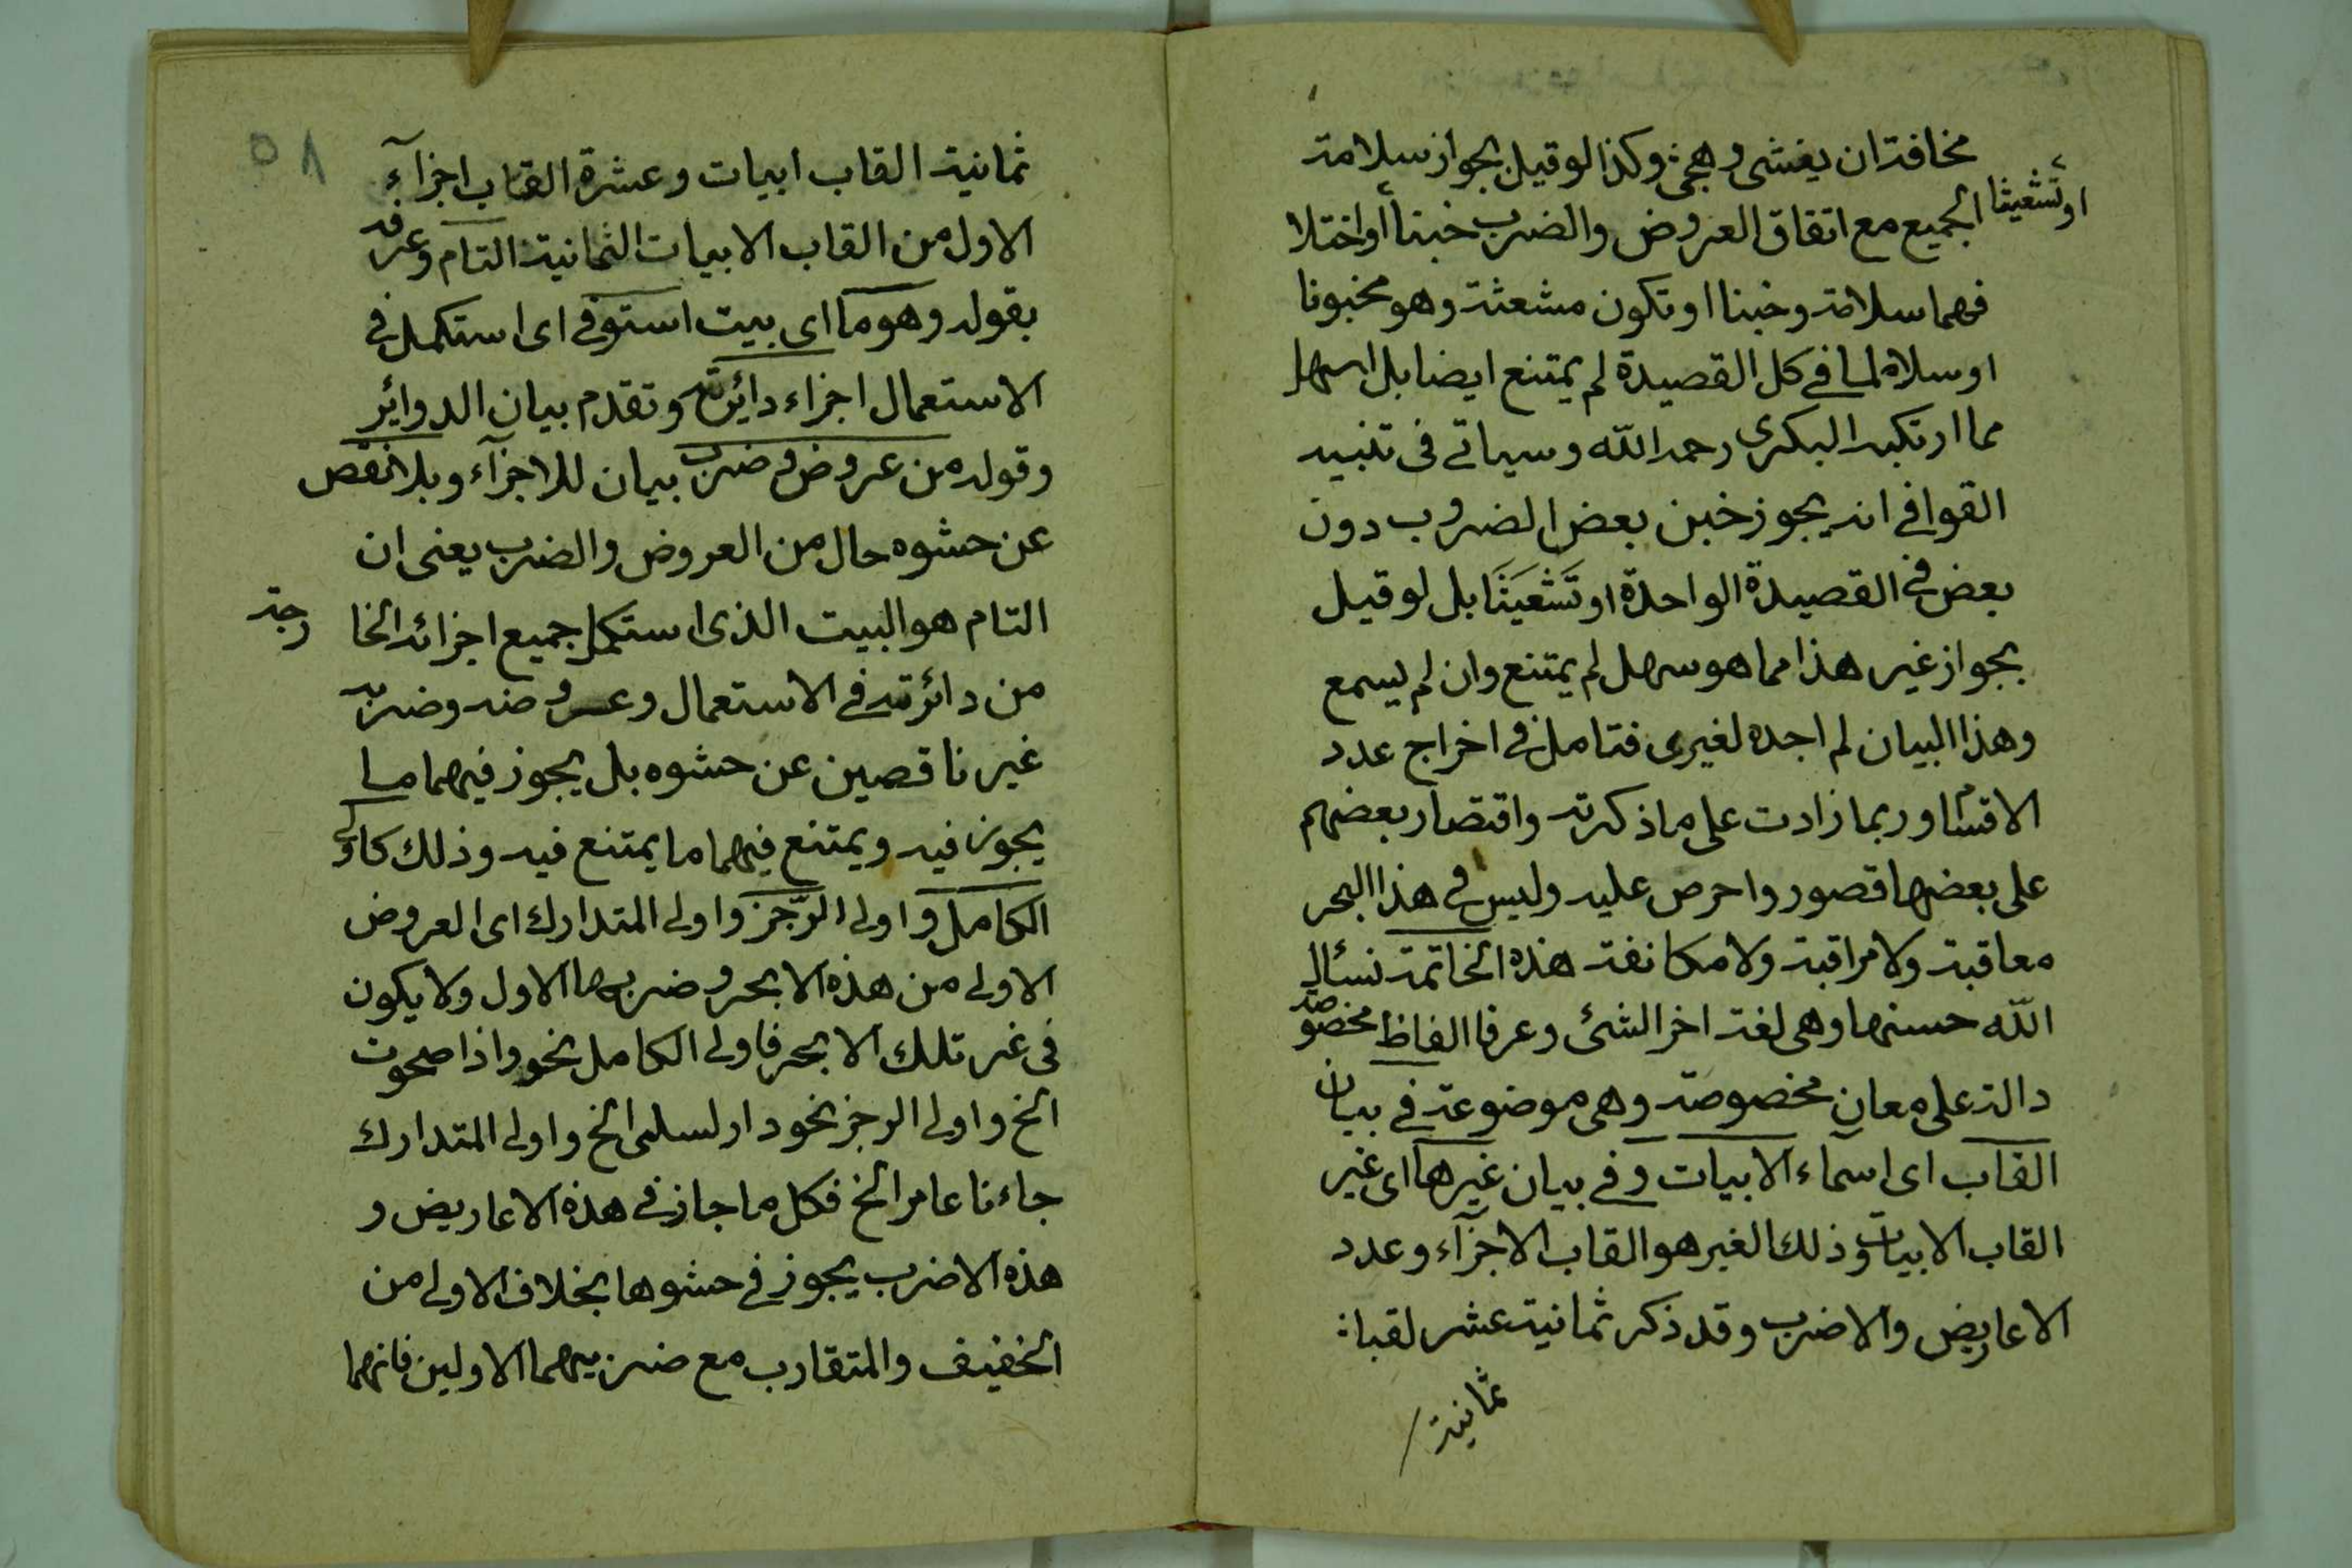 مخافة ان يغشى وهجى وكذا لو قيل بجواز سلامة
او تشعيثا
الجميع مع اتفاق العروض والضرب خبنا أو اختلا
فهما سلامة وخبنا او تكون مشعثة وهو مخبونا
او سلاما في كل القصيدة لم يمتنع ايضا بل اسهل
مما ارتكبه البكرى رحمه الله وسياتى فى تنبيه
القوافى انه يجوز خبن بعض الضروب دون
بعض فى القصيدة الواحدة او تَشْعَيثًا بل لو قيل
بجواز غير هذا مما هو سهل لم يمتنع وان لم يسمع
وهذا البيان لم اجده لغيرى فتامل فى اخراج عدد
الاقسام وربما زادت على ما ذكرته واقتصار بعضهم
على بعضها قصور واحرص عليه وليس فى هذا البحر
معاقبة ولا مراقبة ولا مكانفة هذه الخاتمة نسئال
الله حسنها وهى لغة اخر الشئ وعرفا الفاظ مخصوصة
دالة على معان مخصوصة وهى موضوعة فى بيان
القاب اى اسماء الابيات وفى بيان غيرها اى غير
القاب الابيات وذلك الغير هو القاب الاجزآء وعدد
الاعاريض والاضرب وقد ذكر ثمانية عشر لقبا
ثمانية
٥٨
ثمانية القاب ابيات وعشرة القاب اجزآء
الاول من القاب الابيات الثمانية التام وعرفه
بقوله وهو ما اى بيت استوفى اى استكمل فى
الاستعمال اجزاء دائرته وتقدم بيان الدوائر
وقوله من عروض وضرب بيان للاجزآء وبلا نقص
عن حشوه حال من العروض والضرب يعنى ان
التام هو البيت الذى استكمل جميع اجزائه الخا
رجة
من دائرته فى الاستعمال وعروضه وضربه
غير ناقصين عن حشوه بل يجوز فيهما ما
يجوز فيه ويمتنع فيهما ما يمتنع فيه وذلك كاولى
الكامل واولى الرّجز واولى المتدارك اى العروض
الاولى من هذه الابحر وضربها الاول ولا يكون
فى غير تلك الابحر فاولى الكامل نحو واذا صحوت
الخ واولى الرجز نحو دار لسلمى الخ واولى المتدارك
جاءنا عامر الخ فكل ما جاز فى هذه الاعاريض و
هذه الاضرب يجوز فى حشوها بخلاف الاولى من
الخفيف والمتقارب مع ضربيهما الاولين فانهما